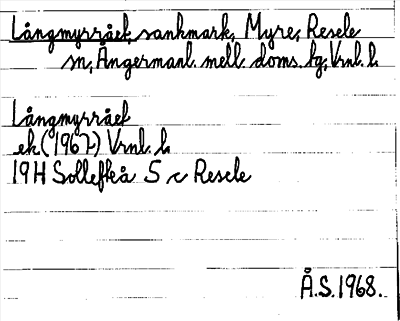 Långmyrråel, sankmark, Myre, Resele
sn, Ångermanl. mell. doms. tg, Vrnl. l.
Långmyrråel
ek (1967) Vrnl. l.
19H Sollefteå 5 c Resele
Å.S. 1968.